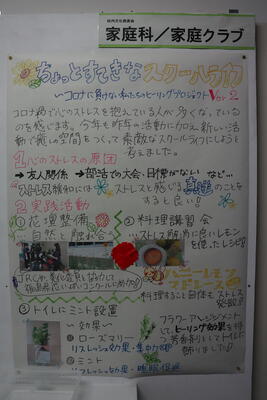 校内文化発表会
家庭科／家庭クラブ
ちょっとすてきなスクールライフ
～コロナに負けない私たちのヒーリングプロジェクト Ver.2
コロナ禍で心のストレスを抱えている人が多くなっている
のを感じます。今年も昨年の活動に加え、新しい活
動で癒しの空間をつくって素敵なスクールライフにしようと
考えました。
1 心のストレスの原因
→友人関係 →部活での大会・目標がない など…
ストレス緩和には ストレスと感じる真逆のことを
すると良い!
2 実践活動
① 花壇整備
自然と触れ合う
② 料理講習会
…ストレス解消に良いレモン
を使ったレシピ!!
ハニーレモン
マドレーヌ
料理すること自体もストレス
発散!!
③ トイレにミント設置
～効果～
ローズマリー
リフレッシュ効果・集中力
ミント
リフレッシュ効果・
フラワーアレンジメント
して、ヒーリング効果を持
つ芳香剤としてトイレに
飾りました!